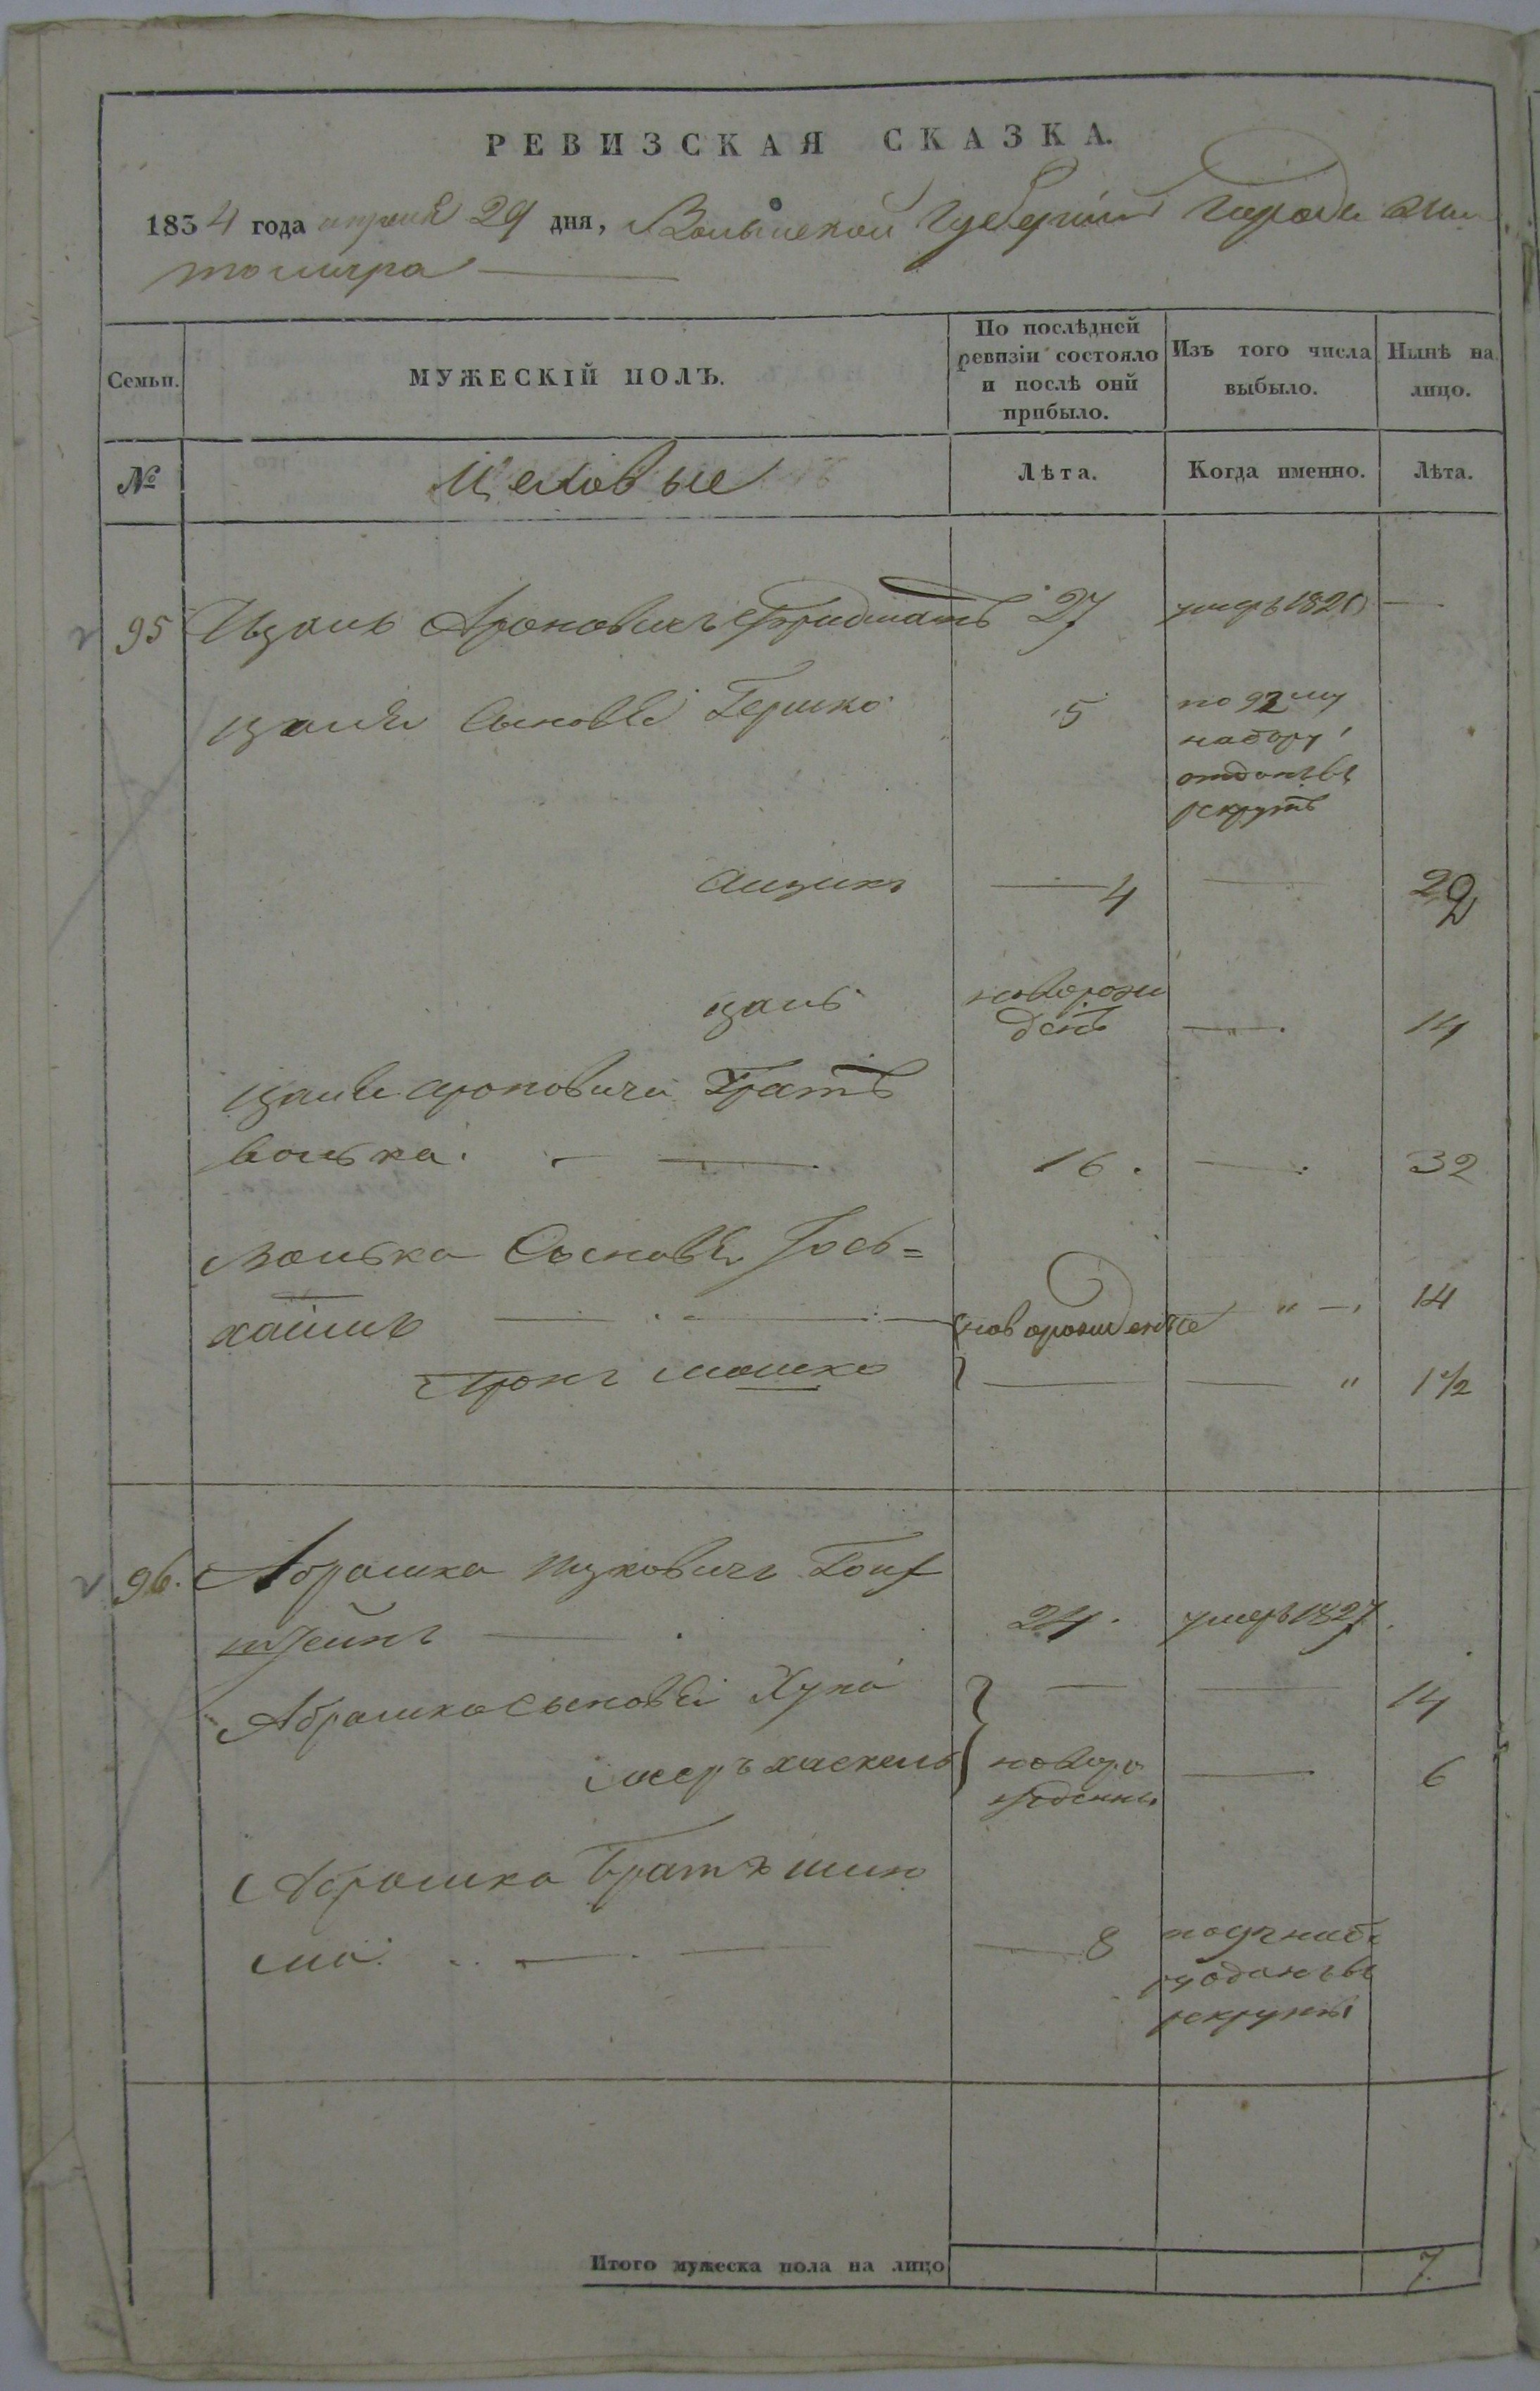 РЕВИЗСКАЯ СКАЗКА.
1834 года апреля 29 дня, Волынской губерніи города Жи
томира
Семьи.
МУЖЕСКІЙ ПОЛЪ.
По послѣдней
ревизіи состояло
и послѣ оной
прибыло.
Изъ того числа
выбыло.
Нынѣ на
лицо.
№
Цеховые
Лѣта.
Когда именно.
Лѣта.
95 Ицомъ Ароновичъ Фридманъ 27 умеръ 1820 —
Сыновья Гершко 5 по 92му
набору
отданъ въ
рекруты
Айзикъ — 4 — 20
новорож
денъ — 14
Ароновичи братъ
Волька — 16. — 32
Волька Сыновья Іось=
Хаимъ — новорожденые " — 14
Аронъ Мошко — — " 1 1/2
96. Абрашка Ицковичъ Гольд
штейнъ — 24. умеръ 1827.
Абрашка Сыновья — — 14
Мееръ Хаскель новоро
жденны — 6
Абрашка братъ Шлио
ма — 8
набо
ру одонъ въ
рекруты
Итого мужеска пола на лицо 7